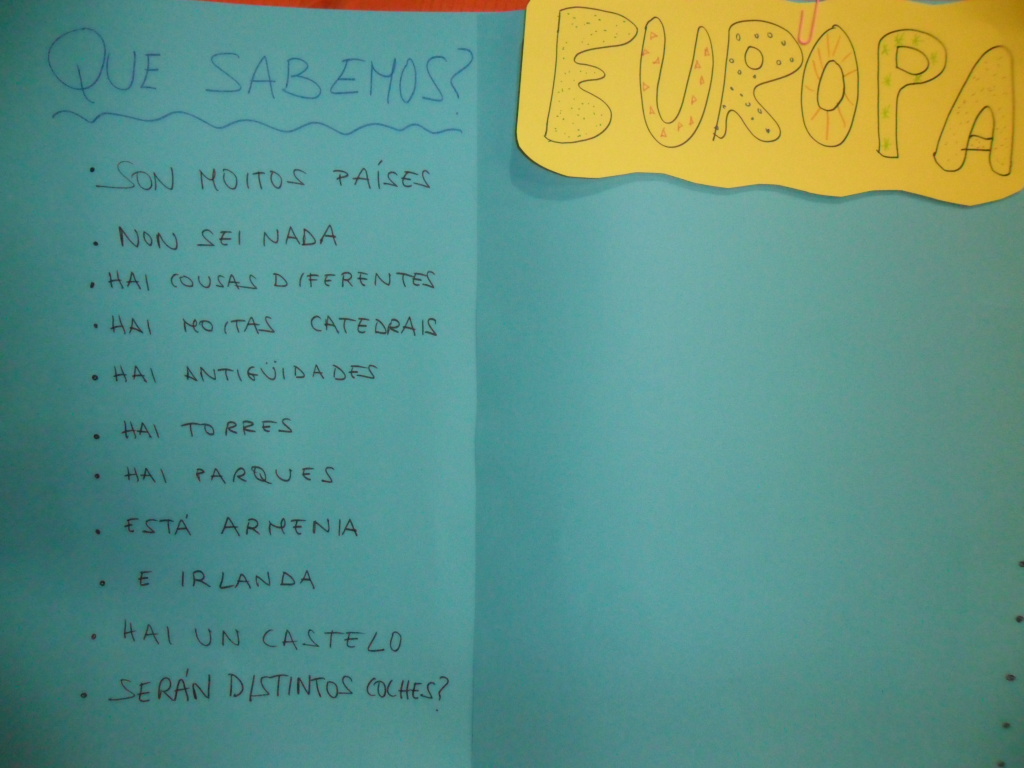 QUE SABEMOS?
EUROPA
· SON MOITOS PAÍSES
· NON SEI NADA
· HAI COUSAS DIFERENTES
· HAI MOITAS CATEDRAIS
· HAI ANTIGÜIDADES
· HAI TORRES
· HAI PARQUES
· ESTÁ ARMENIA
· E IRLANDA
· HAI UN CASTELO
· SERÁN DISTINTOS COCHES?